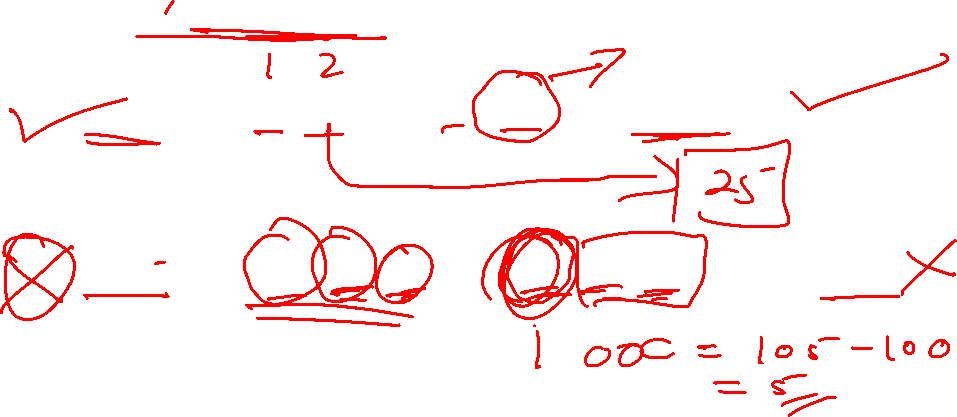 1 2
25
1 00C = 105-100
= 5